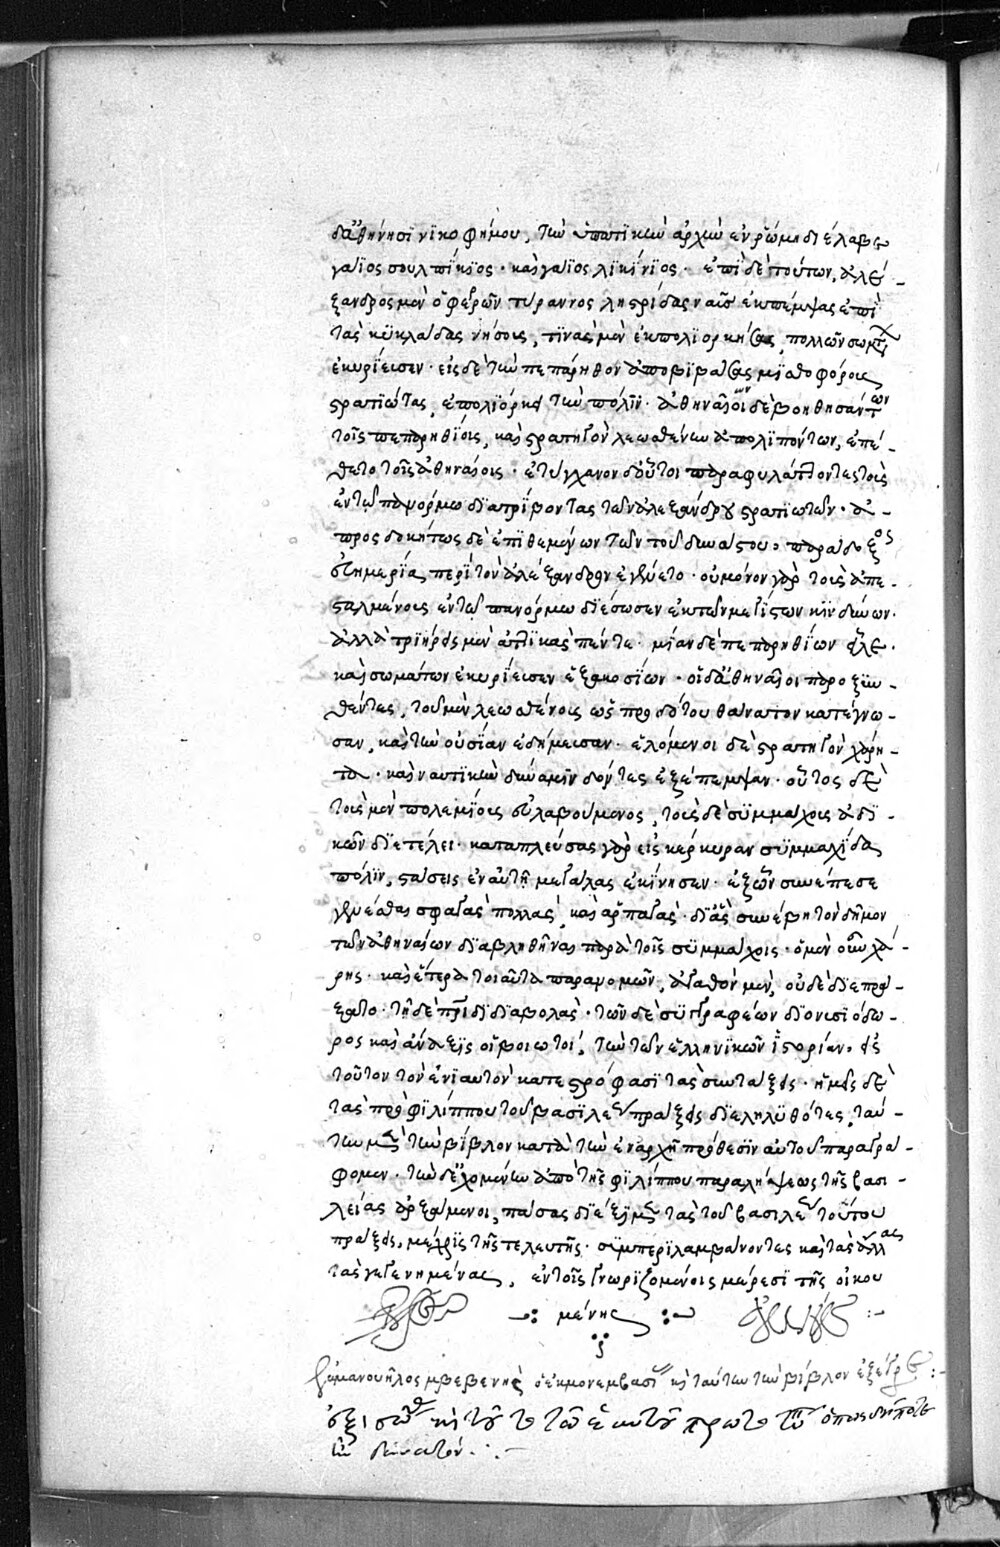 δ᾽ Ἀθήνησι νικοφήμου, τὴν ὑπατικὴν ἀρχὴν ἐν ῥώμη διέλαβον
γάϊος σουλπίκιος· καὶ γάϊος λικίνιος· ἐπὶ δὲ τούτων, ἀλέ-
ξανδρος μὲν ὁ φερῶν τύραννος ληστρίδας ναῦς ἐκπέμψας ἐπὶ
τὰς κυκλάδας νήσους, τινὰς μὲν ἐκπολιορκήσας, πολλῶν σωμάτων
ἐκυρίευσεν· εἰς δὲ τὴν πεπάρηθον ἀποβιβάσας μισθοφόρους
στρατιώτας, ἐπολιόρκει τὴν πόλιν· ἀθηναίων δὲ βοηθησάντων
τοῖς πεπαρηθίοις, καὶ στρατηγὸν λεωσθένην ἀπολιπόντων, ἐπέ-
θετο τοῖς ἀθηναίοις· ἐτύγχανον δ᾽ οὗτοι παραφυλάττοντες τοὺς
ἐν τῶ πανόρμω διατρίβοντας τῶν ἀλεξάνδρου στρατιωτῶν· ἀ-
προσδοκήτως δὲ ἐπιθεμένων τῶν τοῦ δυνάστου, παράδοξος
εὐημερία περὶ τὸν ἀλέξανδρον ἐγένετο· οὐ μόνον γὰρ τοὺς ἀπε-
σταλμένους ἐν τῶ πανόρμω διέσωσεν ἐκ τῶν μεγίστων κινδύνων·
ἀλλὰ τριήρεις μὲν ἀττικὰς πέντε· μίαν δὲ πεπαρηθίων εἷλε·
καὶ σωμάτων ἐκυρίευσεν ἑξακοσίων· οἱ δ᾽ ἀθηναῖοι παροξυν-
θέντες, τοῦ μὲν λεωσθένους ὡς προδότου θάνατον κατέγνω-
σαν, καὶ τὴν οὐσίαν ἐδήμευσαν· ἑλόμενοι δὲ στρατηγὸν χάρη-
τα· καὶ ναυτικὴν δύναμιν δόντες ἐξέπεμψαν· οὗτος δὲ
τοὺς μὲν πολεμίους εὐλαβούμενος, τοὺς δὲ συμμάχους ἀδι-
κῶν διετέλει· καταπλεύσας γὰρ εἰς κέρκυραν συμμαχίδα
πόλιν, στάσεις ἐν αὐτῆ μεγάλας ἐκίνησεν· ἐξ ὧν συνέπεσε
γενέσθαι σφαγὰς πολλὰς, καὶ ἁρπαγὰς· δι᾽ ἃς συνέβη τὸν δῆμον
τῶν ἀθηναίων διαβληθῆναι παρὰ τοῖς συμμάχοις· ὁ μὲν οὖν χά-
ρης· καὶ ἕτερα τοιαῦτα παρανομῶν, ἀγαθὸν μὲν, οὐδὲ διεπρά-
ξατο· τῆ δὲ πατρίδι διαβολὰς· τῶν δὲ συγγραφέων διονυσιόδω-
ρος καὶ ἀνάξις οἱ βοιωτοί, τὴν τῶν ἑλληνικῶν ἱστορίαν, εἰς
τοῦτον τὸν ἐνιαυτὸν κατεστρόφασι τὰς συντάξεις· ἡμεῖς δὲ
τὰς πρὸ φιλίππου τοῦ βασιλέως πράξεις διεληλυθότες, ταύ-
την μὲν τὴν βίβλον κατὰ τὴν ἐν ἀρχῆ πρόθεσιν αὐτοῦ παραγρά-
φομεν· τὴν δ᾽ ἐχομένην ἀπὸ τῆς φιλίππου παραλήψεως τῆς βασι-
λείας ἀρξάμενοι, πάσας διέξιμεν τὰς τοῦ βασιλέως τούτου
πράξεις, μέχρις τῆς τελευτῆς· συμπεριλαμβάνοντες καὶ τὰς ἄλλας
τὰς γεγενημένας, ἐν τοῖς γνωριζομένοις μέρεσι τῆς οἰκου
μένης
ἐμανουῆλος μβεβενης ὁ ἐκ μονεμβασί κ ταύτην τὴν βίβλον ἐξέγρ